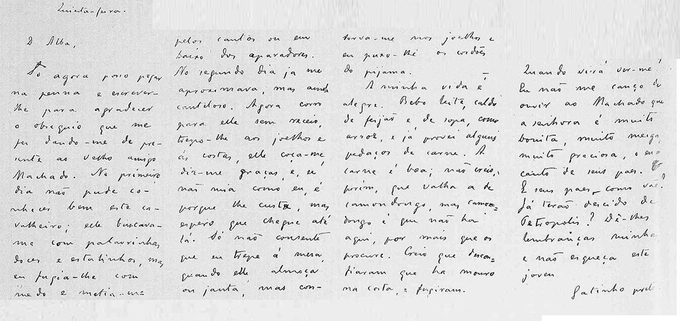 Quinta-feira.
D. Alba,
Só agora posso pegar
na penna e escrever-
lhe para agradecer
o obsequio que me
fez dando-me de pre-
sente ao velho amigo
Machado. No primeiro
dia não pude co-
nhecer bem este ca-
valheiro; elle buscava-
me com palavrinhas
doces e estalinhos, mas
eu fugia-lhe com
medo e mettia-me
pelos cantos ou em-
baixo dos aparadores.
No segundo dia já me
aproximava, mas ainda
cauteloso. Agora corro
para elle sem receio,
trepo-lhe aos joelhos e
ás costas, elle coça-me,
diz-me graças, e, se
não mia como eu, é
porque lhe custa, mas
espero que chegue até
lá. Só não consente
que eu trepe á mesa,
quando elle almoça
ou janta, mas con-
serva-me nos joelhos e
eu puxo-lhe os cordões
do pijama.
A minha vida é
alegre. Bebo leite, caldo
de feijão e de sopa, como
arroz, e já provei alguns
pedaços de carne. A
carne é boa; não creio,
porém, que valha a de
camondongo, mas camon-
dongo é que não ha
aqui, por mais que os
procure. Creio que descon-
fiaram que ha mouro
na costa, e fugiram.
Quando virá ver-me?
Eu não me canço de
ouvir ao Machado que
a senhora é muito
bonita, muito meiga,
muito graciosa, o en-
canto de seus paes.
E seus paes, como vão?
Já terão descido de
Petropolis? Dê-lhes
lembranças minhas
e não esqueça este
jovem
Gatinho preto